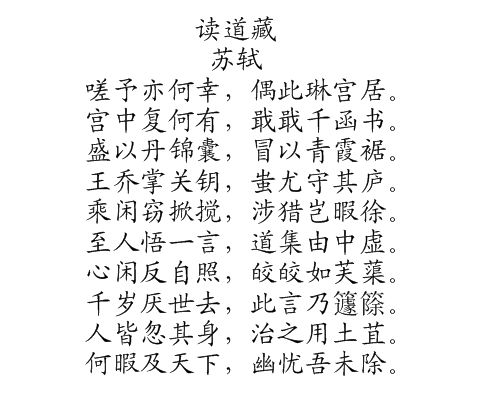 读道藏
苏轼
嗟予亦何幸，偶此琳宫居。
宫中复何有，戢戢千函书。
盛以丹锦囊，冒以青霞裾。
王乔掌关钥，蚩尤守其庐。
乘闲窃掀搅，涉猎岂暇徐。
至人悟一言，道集由中虚。
心闲反自照，皎皎如芙蕖。
千岁厌世去，此言乃籧篨。
人皆忽其身，治之用土苴。
何暇及天下，幽忧吾未除。